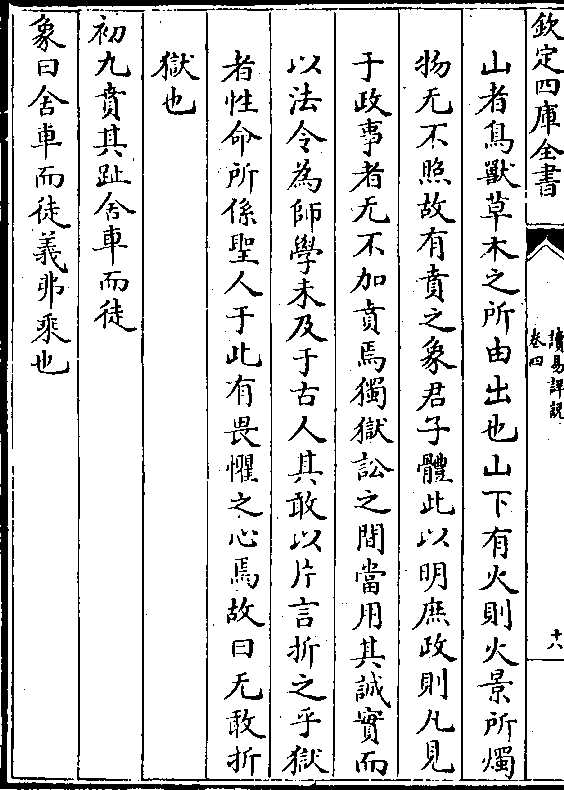 欽定四庫全書
讀易詳說
卷四
十六
山者鳥獸草木之所由出也山下有火則火景所燭
物无不照故有賁之象君子體此以明庶政則凡見
于政事者无不加賁焉獨獄訟之間當用其誠實而
以法令為師學未及于古人其敢以片言折之乎獄
者性命所係聖人于此有畏懼之心焉故曰无敢折
獄也
初九賁其趾舍車而徒
象曰舍車而徒義弗乘也